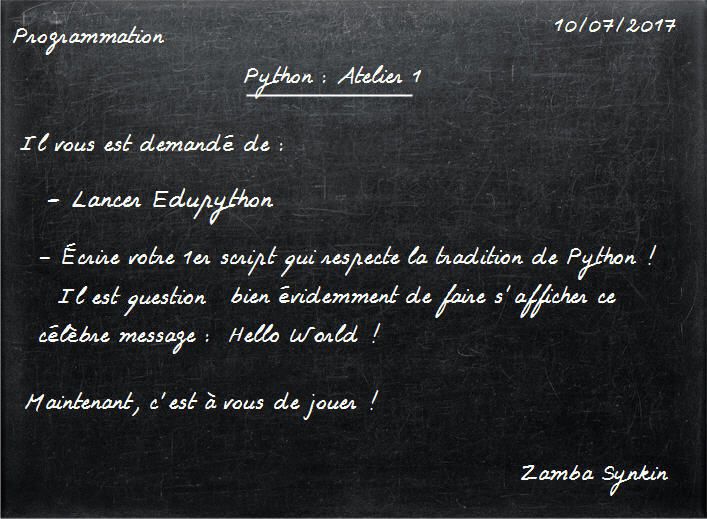 Programmation
10/07/2017
Python : Atelier 1
Il vous est demandé de :
- Lancer Edupython
- Écrire votre 1er script qui respecte la tradition de Python !
Il est question bien évidemment de faire s'afficher ce
célèbre message : Hello World !
Maintenant, c'est à vous de jouer !
Zamba Synkin